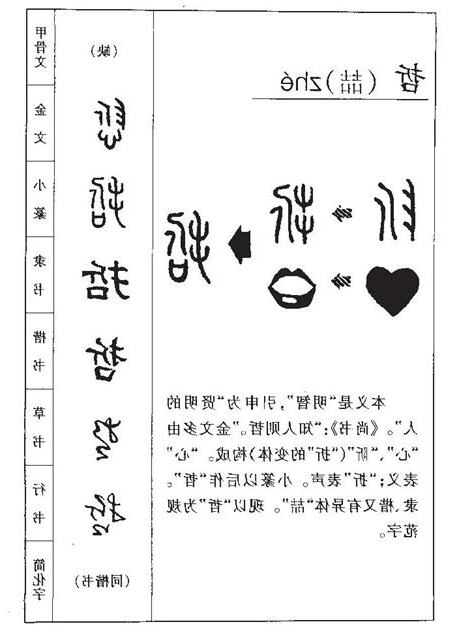 哲（喆）zhé
本义是“明智”，引申为“贤明的
人”。《尚书》：“知人则哲”。金文多由
“心”、“”（“折”的变体）构成。“心”
表义；“折”表声。小篆以后作“哲”。
隶、楷又有异体“喆”。现以“哲”为规
范字。
甲骨文
（缺）
金文
小篆
哲
隶书
哲
楷书
哲
草书
哲
行书
哲
简化字
（同楷书）